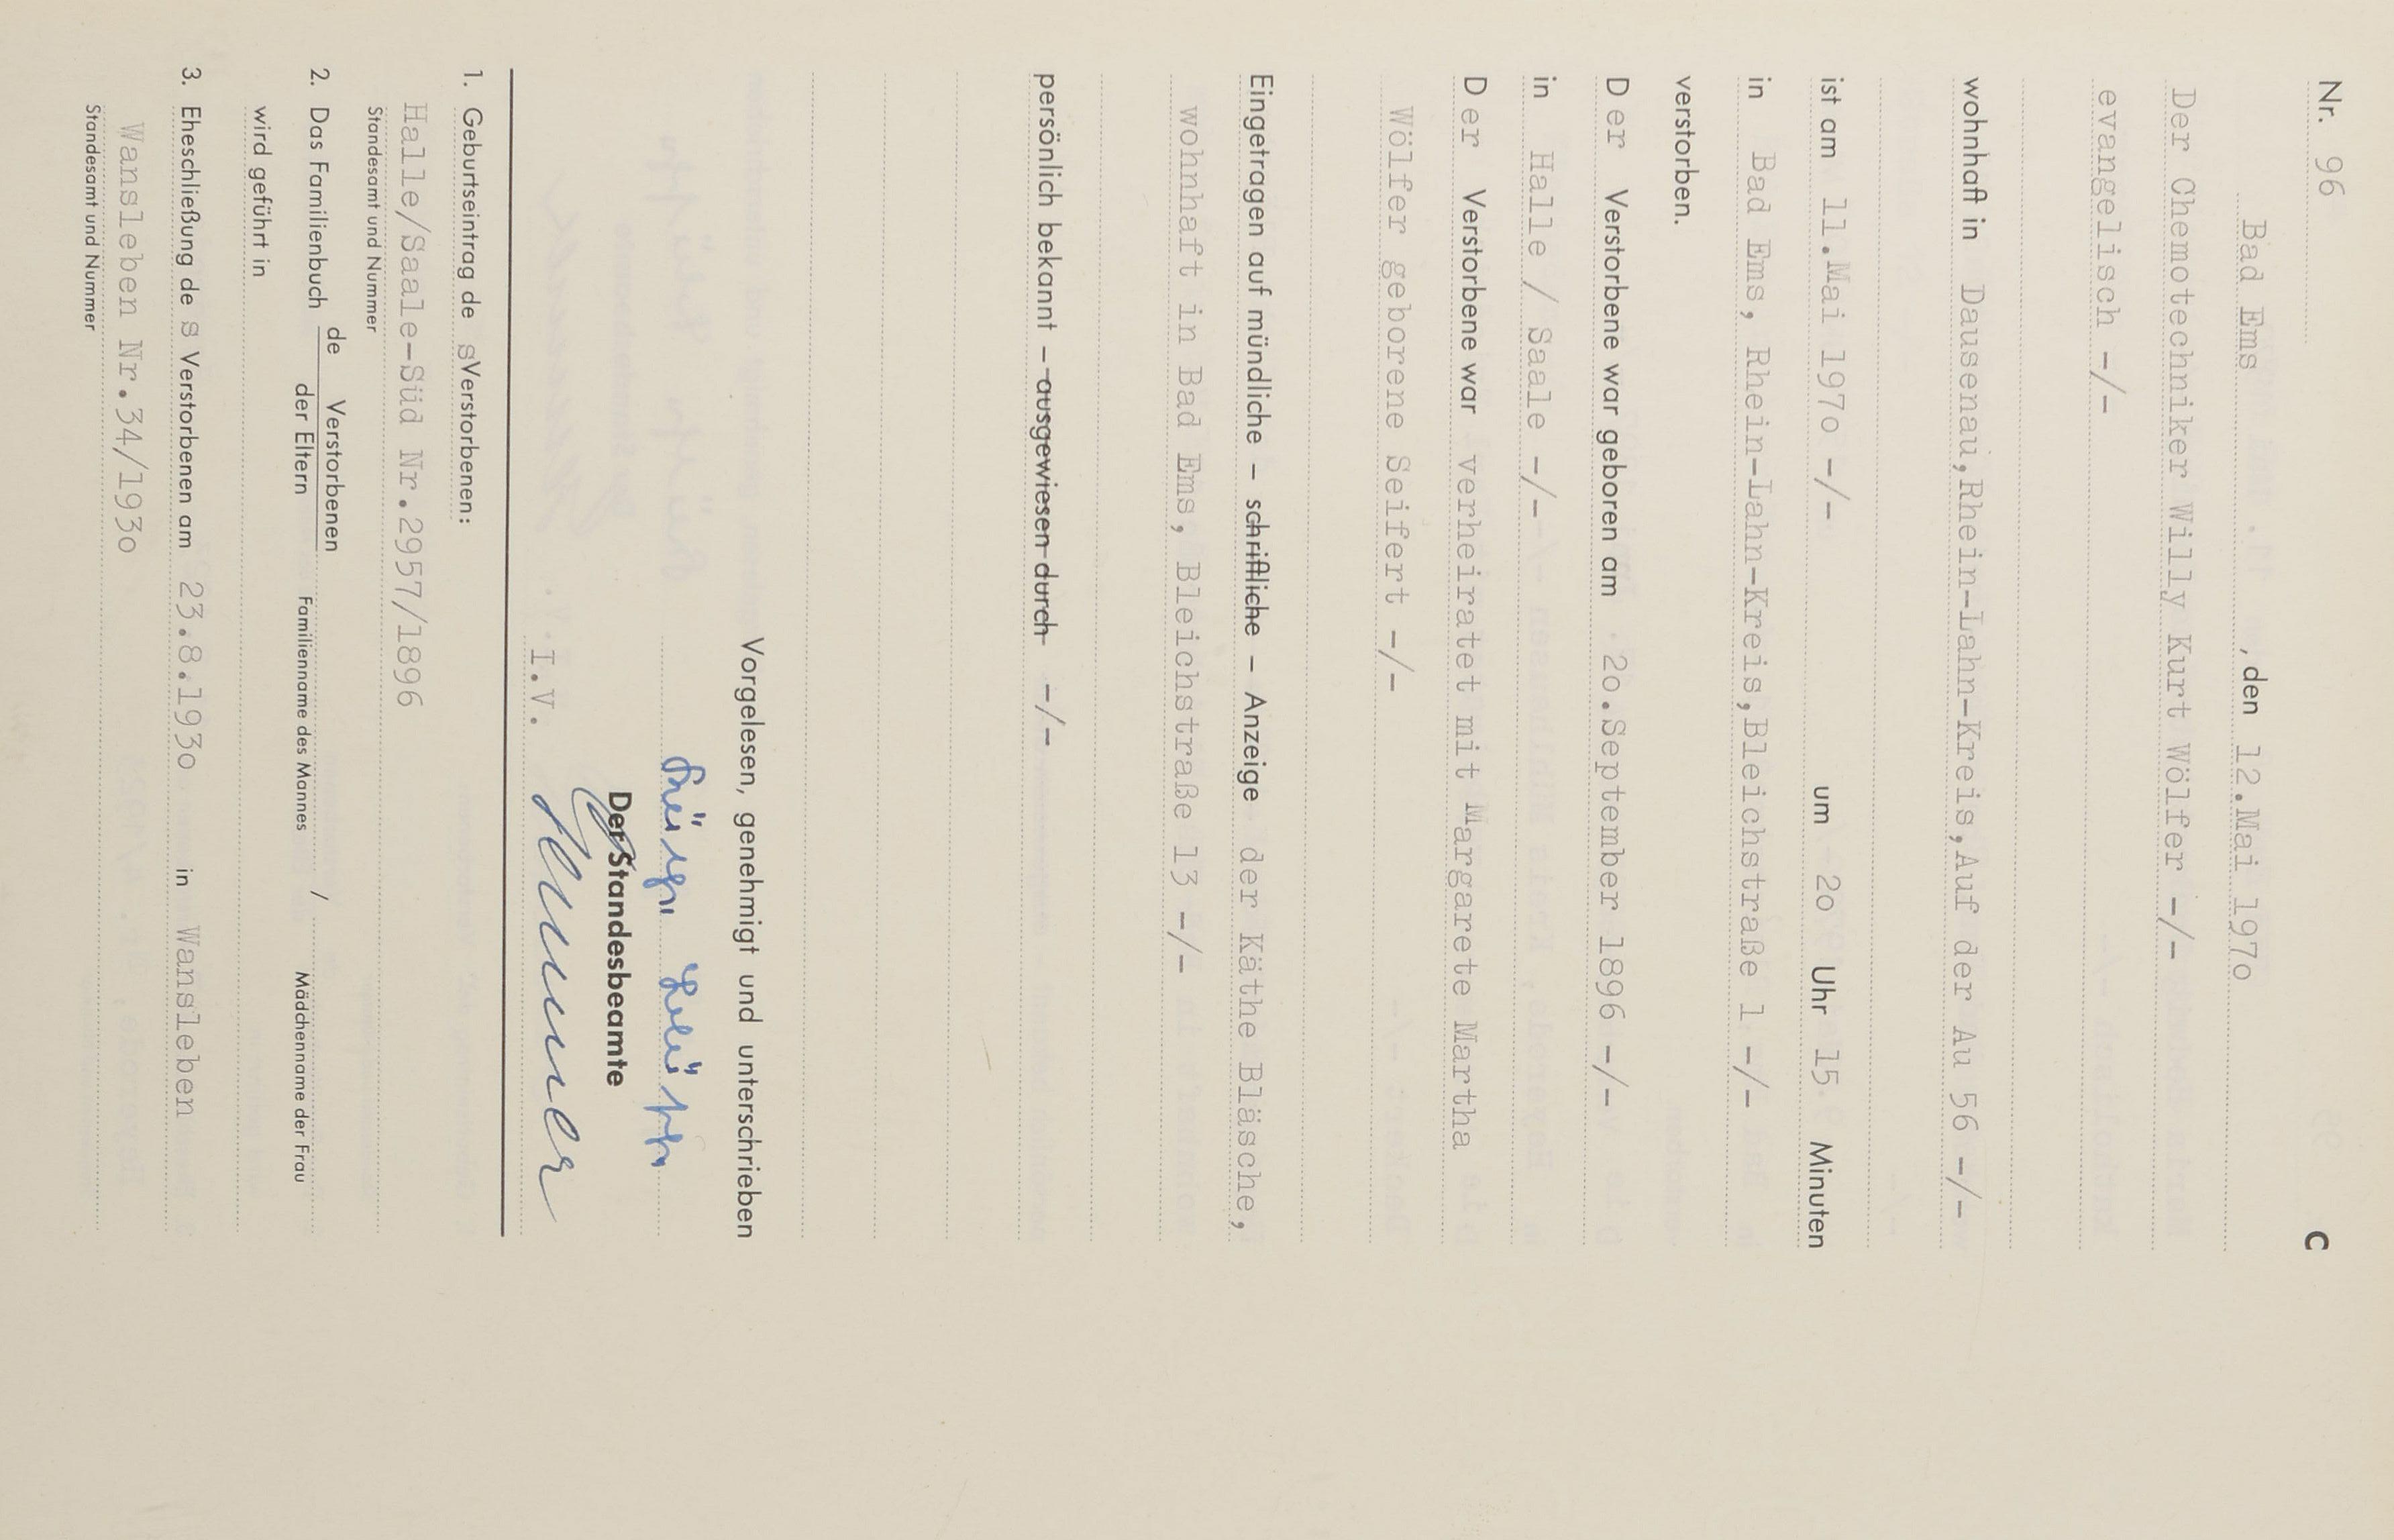 Nr. 96 C
Bad Ems , den 12.Mai 197o
Der Chemotechniker Willy Kurt Wölfer -/-
evangelisch -/-
wohnhaft in Dausenau,Rhein-Lahn-Kreis,Auf der Au 56 -/-
ist am 11.Mai 197o -/- um 2o Uhr 15 Minuten
in Bad Ems, Rhein-Lahn-Kreis,Bleichstraße 1 -/-
verstorben.
Der Verstorbene war geboren am 2o.September 1896 -/-
in Halle / Saale -/-
Der Verstorbene war verheiratet mit Margarete Martha
Wölfer geborene Seifert -/-
Eingetragen auf mündliche – schriftliche – Anzeige der Käthe Bläsche,
wohnhaft in Bad Ems, Bleichstraße 13 -/-
persönlich bekannt – ausgewiesen durch -/-
Vorgelesen, genehmigt und unterschrieben
Der Standesbeamte
I.V.
1. Geburtseintrag de s Verstorbenen:
Halle/Saale-Süd Nr.2957/1896
Standesamt und Nummer
2. Das Familienbuch de Verstorbenen
der Eltern Familienname des Mannes / Mädchenname der Frau
wird geführt in
3. Eheschließung de s Verstorbenen am 23.8.193o in Wansleben
Wansleben Nr.34/193o
Standesamt und Nummer